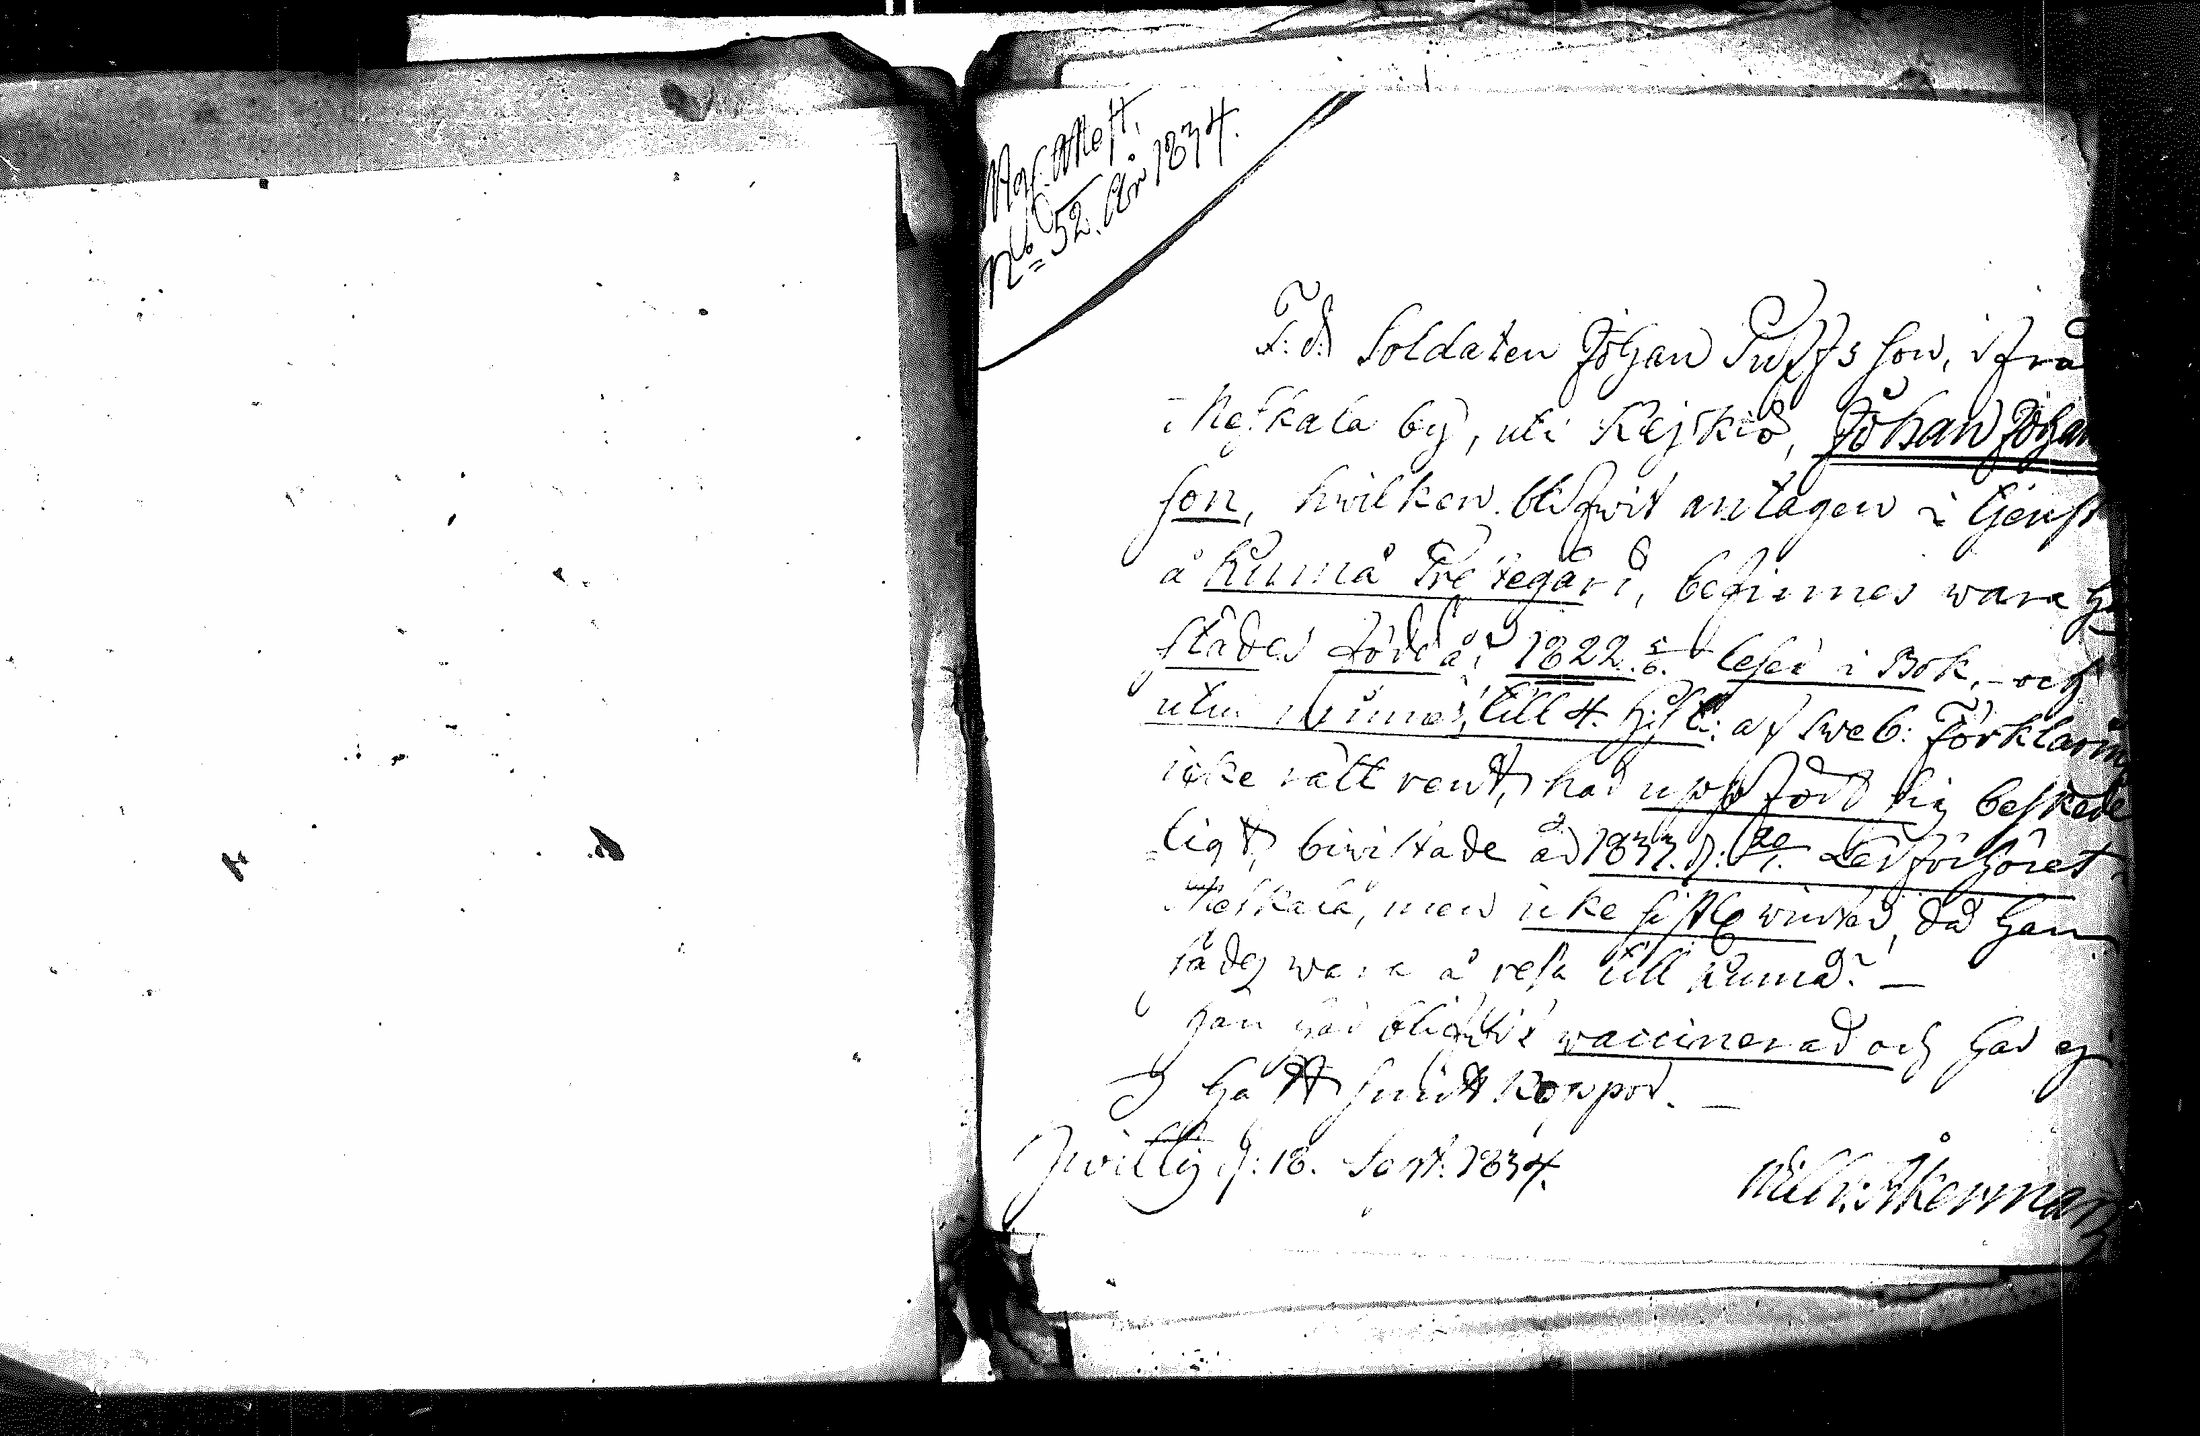 Afl. Att.
No 52. År 1834.
F: d: Soldaten Johan Puffs son, ifrå
Meskala by, uti Kejkiö, Johan Johan
son, hwilken blifwit antagen i tjenst
å Kumå Prestegård, befinnes wara
städes född år 1822. 5/6. läser i Bok, och
utur minnet, till 4. af Sweb: Förklaring
icke rätt rent, har uppfört sig beskede
ligt, biwistade år 1833. d: Läsförhöret
Meskala, men icke sistl. winter, då han
sades wara å resa till Kumå. —
Han har blifwit waccinerad och har ej
haft Smittkoppor. —
Jwittis d: 18. Sept. 1834.
Wilh: Åkerman